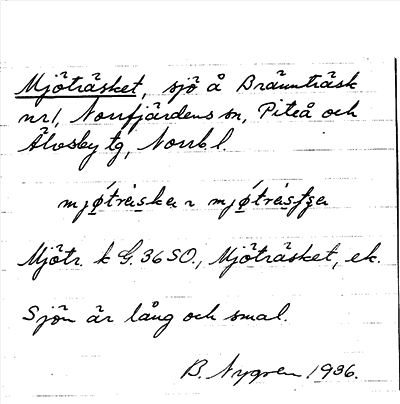 Mjöträsket, sjö å Brännträsk
nr 1, Norrfjärdens sn, Piteå och
Älvsby tg, Norrb l.
Mjötr. k G. 36 SO., Mjöträsket, ek.
Sjön är lång och smal.
B. Nygren 1936.